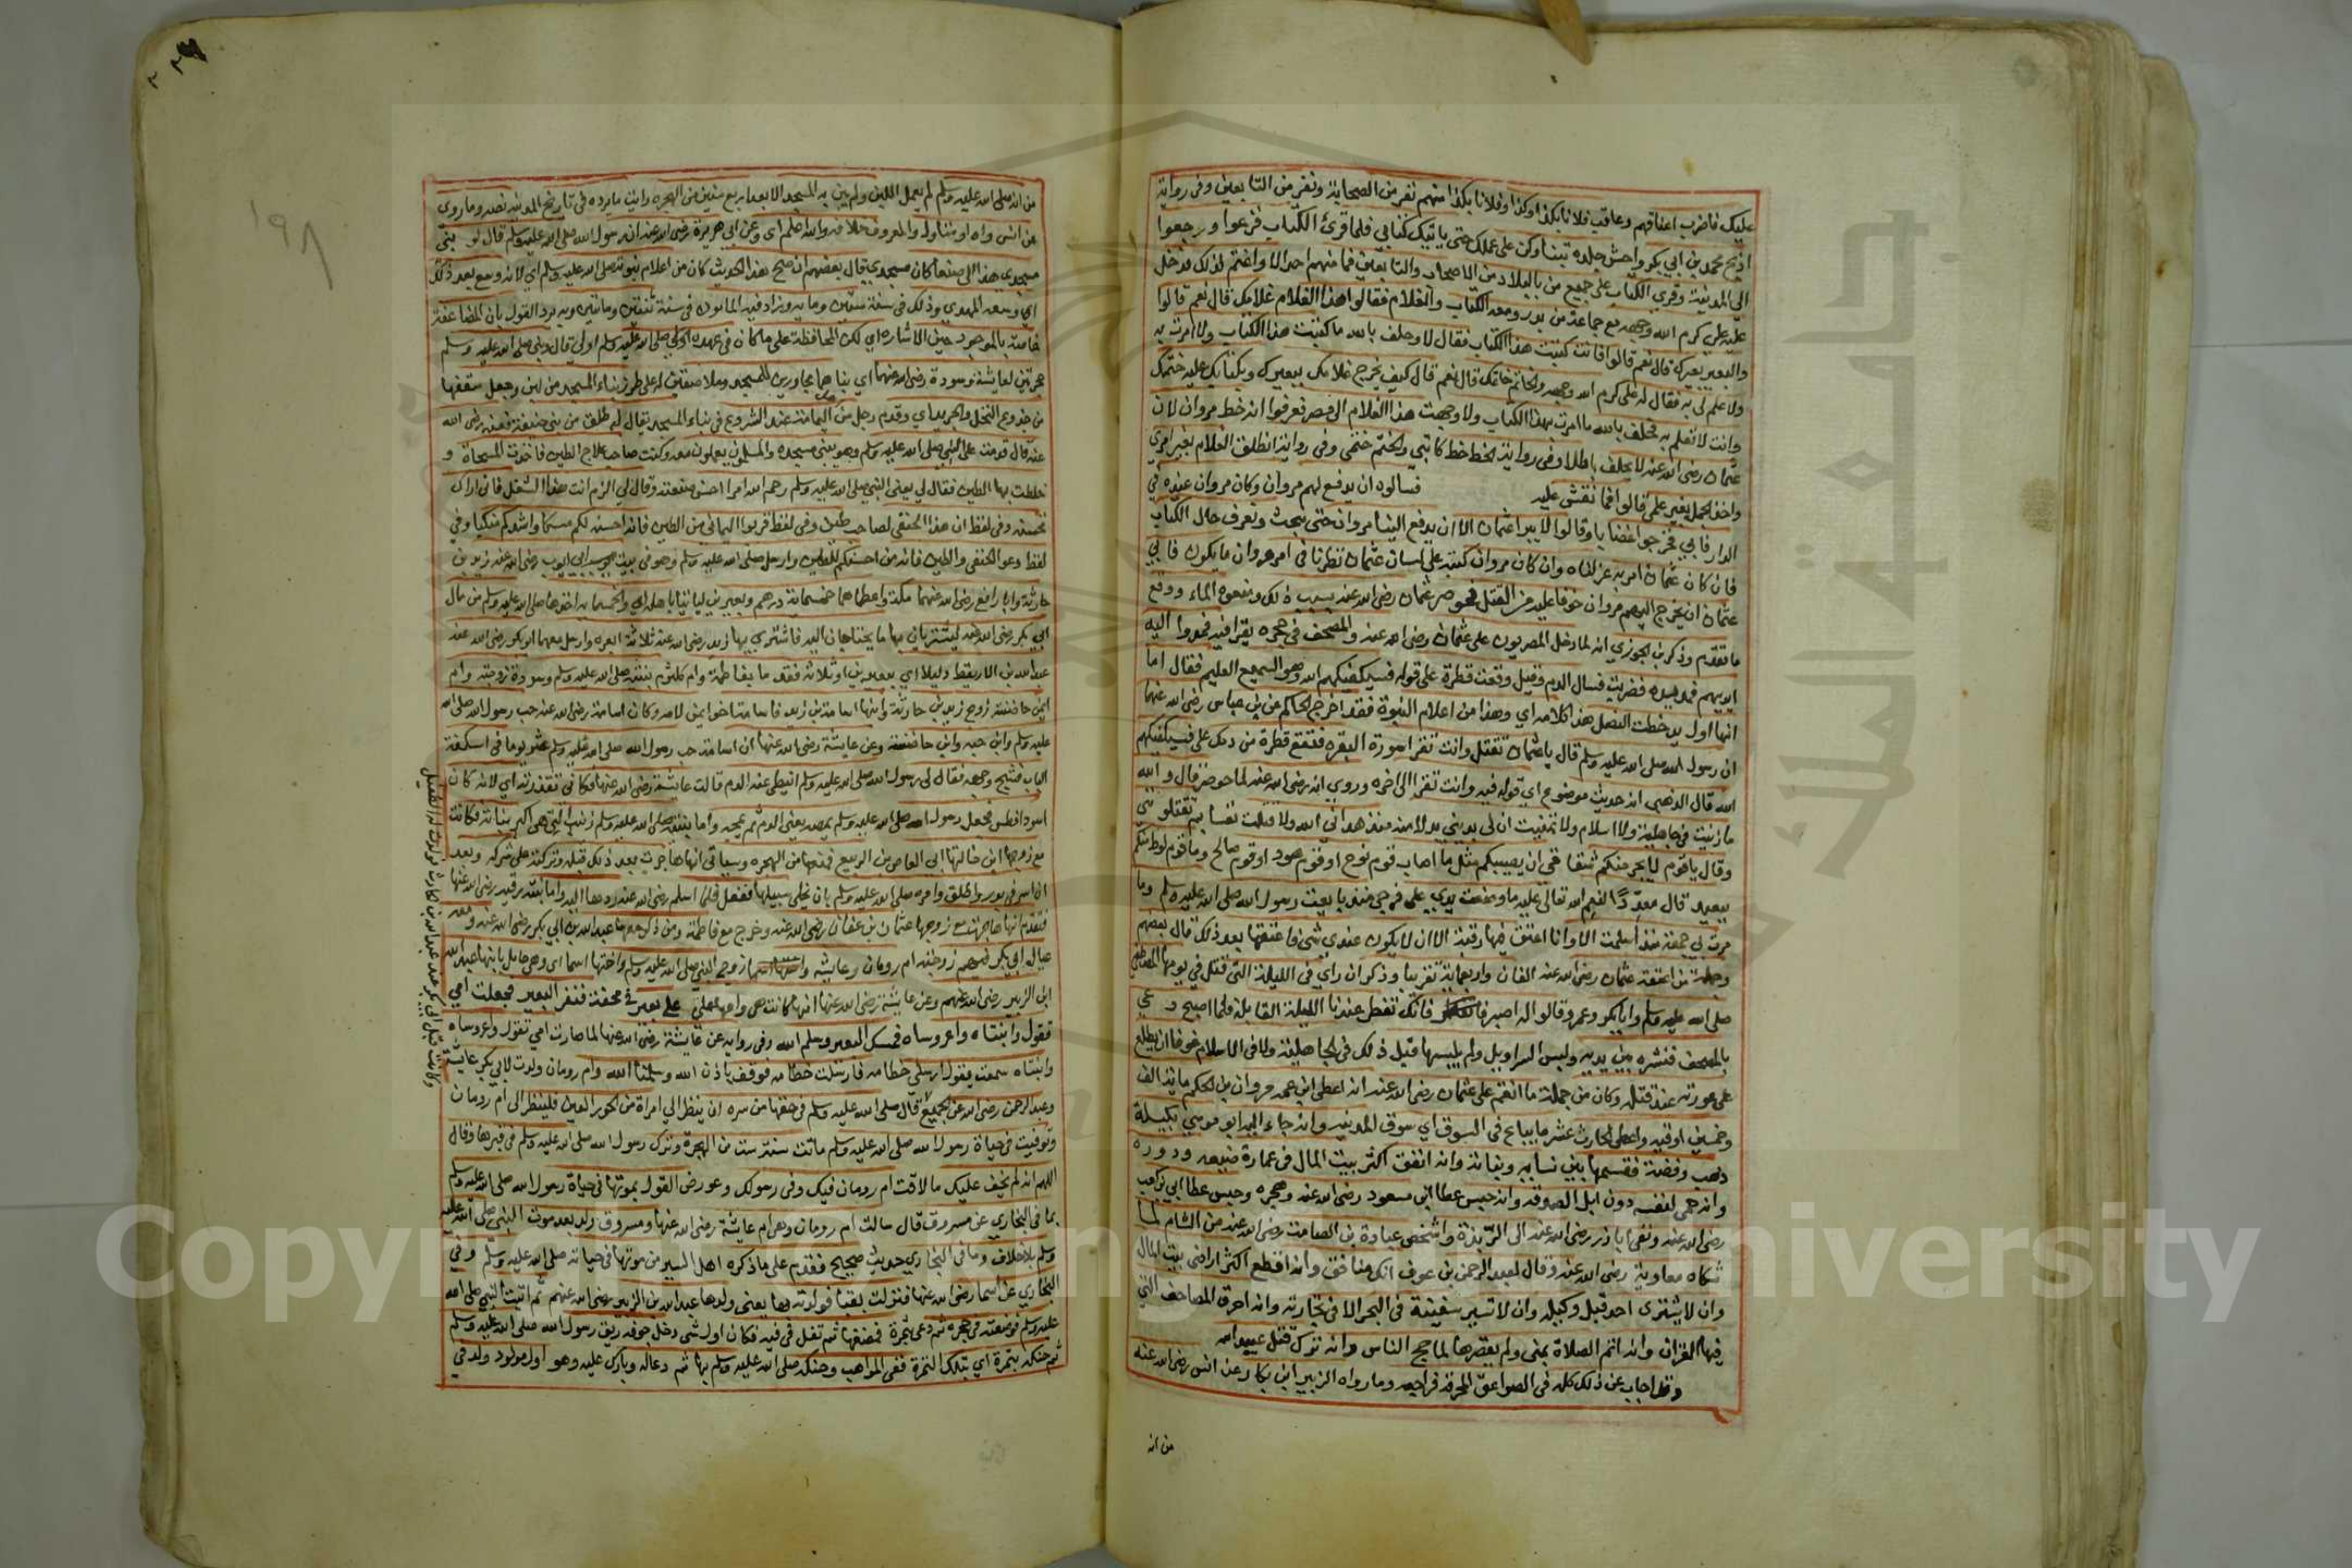 عليك فاضرب اعناقهم وعاقب فلانا بكذا وكذا وفلانا بكذا منهم نفر من الصحابة ونفر من التابعين وفى رواية
اذبح محمد بن ابي بكر واحش جلده تبنا وكن على عملك حتى ياتيك كتابي فلما قرئ الكتاب فزعوا ورجعوا
الي المدينة وقرئ الكتاب على جميع من بالبلاد من الصحابة والتابعين فما منهم احد الا واغتم لذلك فدخل
عليه علي كرم الله وجهه مع جماعة من بدر ومعه الكتاب والغلام فقالوا هذا الغلام غلامك قال نعم قالوا
والبعير بعيرك قال نعم قالوا فانت كتبت هذا الكتاب فقال لا وحلف بالله ما كتبت هذا الكتاب ولا امرت به
ولا علم لي به فقال له على كرم الله وجهه والخاتم خاتمك قال نعم قال كيف يخرج غلامك ببعيرك وبكتابك عليه ختمك
وانت لا تعلم به فحلف بالله ما امرت بهذا الكتاب ولا وجهت هذا الغلام الى مصر فعرفوا انه خط مروان لان
عثمان رضى الله عنه لا يحلف باطلا وفى رواية الخط خط كاتبي والختم ختمى وفى رواية انطلق الغلام بغير امري
واخذ الجمل بغير علمى قالوا فما نقش عليه فسالوه ان يدفع لهم مروان وكان مروان عنده في
الدار فابى فخرجوا غضابا وقالوا لا يبرا عثمان الا ان يدفع الينا مروان حتى نبحث ونعرف حال الكتاب
فان كان عثمان امر به عزلناه وان كان مروان كتبه على لسان عثمان نظرنا فى امر مروان ما يكون فابى
عثمان ان يخرج اليهم مروان خوفا عليه من القتل فحوصر عثمان رضى الله عنه بسبب ذلك ومنعوه الماء ووقع
ما تقدم وذكر بن الجوزي انه لما دخل المصريون على عثمان رضى الله عنه والمصحف فى حجره يقرا فيه فمدوا اليه
ايديهم فمد يده فضربت فسال الدم وقيل وقعت قطرة على قوله فسيكفيكهم الله وهو السميع العليم فقال اما
انها اول يد خطت المفصل هذا كلامه اي وهذا من اعلام النبوة فقد اخرج الحاكم عن بن عباس رضى الله عنهما
ان رسول الله صلى الله عليه وسلم قال يا عثمان تقتل وانت تقرا سورة البقره فتقع قطرة من دمك على فسيكفيكهم
الله قال الذهبى انه حديث موضوع اي قوله فيه وانت تقرا الى اخره وروي انه رضى الله عنه لما حوصر قال والله
ما زنيت فى جاهلية ولا اسلام ولا تمنيت ان لى بدينى بدلا منذ هداني الله ولا قتلت نفسا فبم تقتلوننى
وقال يا قوم لا يجرمنكم شقاقى ان يصيبكم مثل ما اصاب قوم نوح او قوم هود او قوم صالح وما قوم لوط منكم
ببعيد قال معددا لنعم الله تعالى عليه ما وضعت يدي على فرجى منذ بايعت رسول الله صلى الله عليه وسلم وما
مرت بي جمعة منذ اسلمت الا وانا اعتق فيها رقبة الا ان لا يكون عندي شئ فاعتقها بعد ذلك قال بعضهم
وجملة من اعتقه عثمان رضى الله عنه الفان واربعماية تقريبا وذكر ان راي فى الليلة التى قتل في يومها المصطفى
صلى الله عليه وسلم وابا بكر وعمر وقالوا له اصبر فانك تفطر عندنا الليلة القابلة فلما اصبح دعي
بالمصحف فنشره بين يديه ولبس السراويل ولم يلبسها قبل ذلك فى الجاهلية ولا فى الاسلام خوفا ان يطلع
على عورته عند قتله وكان من جملة ما انتقم على عثمان رضى الله عنه انه اعطى ابن عمه مروان بن الحكم ماية الف
وخمسين اوقيه واعطى الحارث عشر ما يباع فى السوق اي سوق المدينه وانه جاء اليه ابو موسى بكيلة
ذهب وفضة فقسمها بين نسايه وبناته وانه انفق اكثر بيت المال فى عمارة ضيعه ودوره
وانه حمى لنفسه دون ابل الصدقه وانه حبس عطا ابن مسعود رضى الله عنه وهجره وحبس عطا ابي بن كعب
رضى الله عنه ونفى ابا ذر رضى الله عنه الى الربذة واشخص عبادة بن الصامت رضى الله عنه من الشام لما
شكاه معاوية رضى الله عنه وقال لعبد الرحمن بن عوف انك منافق وانه اقطع اكثر اراضى بيت المال
وان لا يشترى احد قبل وكيله وان لا تسير سفينة فى البحر الا فى تجارته وانه احرق المصاحف التي
فيها القران وانه اتم الصلاة بمنى ولم يقصرها لما حج بالناس وانه ترك قتل عبيد الله
وقد اجاب عن ذلك كله فى الصواعق المحرقه فراجعه وما رواه الزبير ابن بكار عن انس رضى الله عنه
من انه
١٩٨
من انه صلى الله عليه وسلم لم يعمل اللبن ولم يبن به المسجد الا بعد اربع سنين من الهجره رايت ما يرده فى تاريخ المدينه نصه وما روى
عن انس واه او متناول والمعروف خلافه والله اعلم اى وعن ابي هريرة رضى الله عنه ان رسول الله صلى الله عليه وسلم قال لو بنى
مسجدي هذا الى صنعا كان مسجدي قال بعضهم ان صح هذا الحديث كان من اعلام نبوته صلى الله عليه وسلم اي لانه وسع بعد ذلك
اي وسعه المهدي وذلك فى سنة ستين وماية وزاد فيه المامون فى سنة ثنتين ومائتين وبه يرد القول بان المضاعفة
خاصة بالموجود حين الاشاره اي لكن المحافظة على ما كان في عهده صلى الله عليه وسلم اولى قال وبنى صلى الله عليه وسلم
حجرتين لعايشة وسودة رضى الله عنهما اي بناهما مجاورين للمسجد وملاصقين له على طرز بناء المسجد من لبن وجعل سقفها
من جذوع النخل والجريد اي وقدم رجل من اليمامة عند الشروع فى بناء المسجد يقال له طلق من بنى حنيفة فعنه رضى الله
عنه قال قدمت على النبي صلى الله عليه وسلم وهو يبني مسجده والمسلمون يعملون معه وكنت صاحب علاج الطين فاخذت المسحاة و
خلطت بها الطين فقال لي يعنى النبي صلى الله عليه وسلم رحم الله امرا احسن صنعته وقال لي الزم انت هذا الشغل فانى اراك
تحسنه وفى لفظ ان هذا الحنفى لصاحب طين وفى لفظ قربوا اليمامي من الطين فانه احسنه لكم مسكا واشدكم منكبا وفي
لفظ دعوا الحنفى والطين فانه من احسنكم للطين وارسل صلى الله عليه وسلم وهو فى بيت ابي ايوب رضى الله عنه زيد بن
حارثة وابا رافع رضى الله عنهما مكة واعطاهما خمسماية درهم وبعيرين لياتيا باهله اي والخمسماية اخذها صلى الله عليه وسلم من مال
ابي بكر رضى الله عنه ليشتريان بها ما يحتاجان اليه فاشترى بها زيد رضى الله عنه ثلاثة ابعره وارسل معهما ابو بكر رضى الله عنه
عبد الله بن الاريقط دليلا اي ببعيرين او ثلاثه فقدما بفاطمة وام كلثوم بنتيه صلى الله عليه وسلم وسودة زوجته وام
ايمن حاضنته زوج زيد بن حارثة وابنها اسامة بن زيد فاسامة اخو ايمن لامه وكان اسامة رضى الله عنه حب رسول الله صلى الله
عليه وسلم وابن حبه وابن حاضنته وعن عايشة رضى الله عنها ان اسامة حب رسول الله صلى الله عليه وسلم عثر يوما فى اسكفة
الباب فشج وجهه فقال لى رسول الله صلى الله عليه وسلم اميطى عنه الدم قالت عايشة رضى الله عنها فكانى تقذرته اي لانه كان
اسود افطس فجعل رسول الله صلى الله عليه وسلم يمصه يعنى الدم ثم يمجه واما بنته صلى الله عليه وسلم زينب التي هى اكبر بناته فكانت
مع زوجها ابن خالتها ابي العاص بن الربيع فمنعها من الهجره وسياتى انها هاجرت بعد ذلك قبله وتركته على شركه وبعد
ان اسر فى بدر واطلق وامره صلى الله عليه وسلم بان يخلى سبيلها ففعل فلما اسلم رضى الله عنه ردها اليه واما بنته رقيه رضى الله عنها
فتقدم انها هاجرت مع زوجها عثمان بن عفان رضى الله عنه وخرج مع فاطمة ومن ذكر معها عبد الله بن ابي بكر رضى الله عنه ومعه
عيال ابي بكر فيهم زوجته ام رومان وعايشه واختها اسما زوج النبي صلى الله عليه وسلم واختها اسما اى وهى حامل بابنها عبد الله
ابن الزبير رضى الله عنهم وعن عايشة رضى الله عنها انها كانت هى وامها على بعير فى محفة فنفر البعير فجعلت امي
تقول وابنتاه واعروساه فمسك البعير وسلم الله وفى رواية عن عايشة رضى الله عنها لما صارت امي تقول واعروساه
وابنتاه سمعت يقول ارسلى خطامه فارسلت خطامه فوقف باذن الله وسلمنا الله وام رومان ولدت لابي بكر عايشة
وعبد الرحمن رضى الله عن الجميع قال صلى الله عليه وسلم فى حقها من سره ان ينظر الى امراة من الحور العين فلينظر الى ام رومان
وتوفيت فى حياة رسول الله صلى الله عليه وسلم ماتت سنة ست من الهجرة ونزل رسول الله صلى الله عليه وسلم فى قبرها وقال
اللهم انه لم يخف عليك ما لاقت ام رومان فيك وفى رسولك وعورض القول بموتها فى حياة رسول الله صلى الله عليه وسلم
بما فى البخاري عن مسروق قال سالت ام رومان وهى ام عايشة رضى الله عنها ومسروق ولد بعد موت النبى صلى الله عليه
وسلم بلا خلاف وما فى البخاري حديث صحيح فقدم على ما ذكره اهل السير من موتها فى حياته صلى الله عليه وسلم وفي
البخاري عن اسما رضى الله عنها فنزلت بقبا فولدته بها يعنى ولدها عبد الله بن الزبير رضى الله عنهم ثم اتيت النبي صلى الله
عليه وسلم فوضعته فى حجره ثم دعى بتمرة فمضغها ثم تفل فى فيه فكان اول شى دخل جوفه ريق رسول الله صلى الله عليه وسلم
ثم حنكه بتمرة اي بتلك التمرة ففى المواهب وحنكه صلى الله عليه وسلم بها ثم دعا له وبارك عليه وهو اول مولود ولد في
وكانت قبل ابي بكر عند عبد الله بن الحارث فولدت له الطفيل
جامعة الملك
Copyright © King University